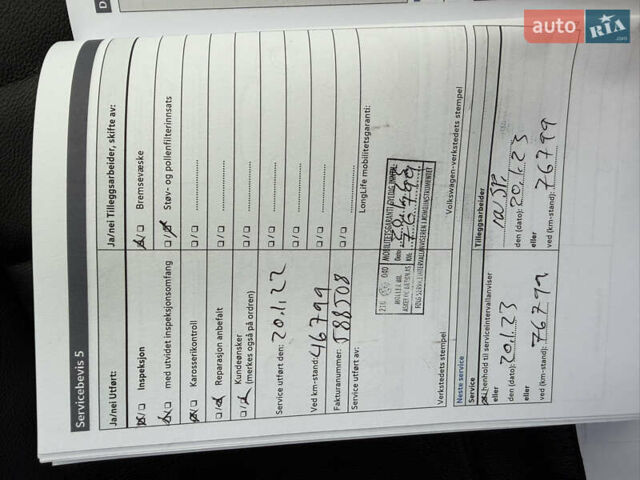 auto RIA.com
Servicebevis 5
Ja/nei Utført:
Ja/nei Tilleggsarbeider, skifte av:
□/□ Inspeksjon
□/□ Bremsevæske
□/□ med utvidet inspeksjonsomfang
□/□ Støv- og pollenfilterinnsats
□/□ Karosserikontroll
□/□ ....................
□/□ Reparasjon anbefalt
□/□ ....................
□/□ Kundeønsker
(merkes også på ordren)
□/□ ....................
Service utført den: 20.1.22
□/□ ....................
Ved km-stand: 46799
□/□ ....................
Fakturanummer: 588508
□/□ ....................
Service utført av:
LongLife mobilitetsgaranti:
MOBILITETSGARANTI
Dato: 20.1.23
KM: 76799
Verkstedets stempel
Volkswagen-verkstedets stempel
Neste service
Service
Tilleggsarbeider
henhold til serviceintervallanviser
eller
den (dato): 20.1.23
den (dato): 20.1.23
eller
eller
ved (km-stand): 76799
ved (km-stand): 76799